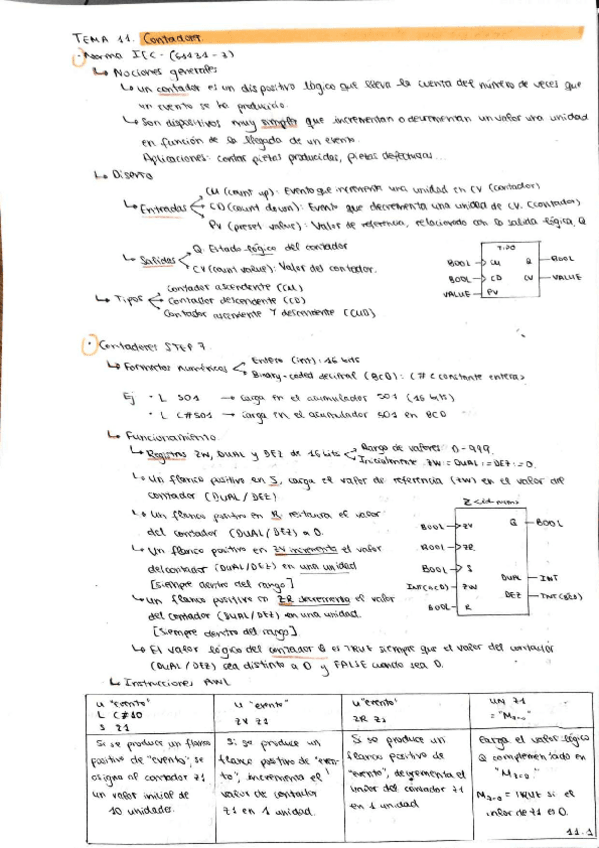 TEMA 11. Contadores
Norma IEC - (61131-3)
↳ Nociones generales
↳ un contador es un dispositivo lógico que lleva la cuenta del número de veces que
un evento se ha producido.
↳ Son dispositivos muy simples que incrementan o decrementan un valor una unidad
en función de la llegada de un evento.
Aplicaciones: contar piezas producidas, piezas defectuosas...
↳ Diseño
↳ Entradas
CU (count up): Evento que incrementa una unidad en CV (contador)
CD (count down): Evento que decrementa una unidad de CV. (contador)
PV (preset value): Valor de referencia, relacionado con la salida lógica, Q
↳ Salidas
Q: Estado lógico del contador
CV (count value): Valor del contador.
TIPO
BOOL CU Q BOOL
BOOL CD CV VALUE
VALUE PV
↳ Tipos
Contador ascendente (CU)
Contador descendente (CD)
Contador ascendente Y descendente (CUD)
Contadores STEP 7
↳ Formatos numéricos
Entero (int): 16 bits
Binary-coded decimal (BCD): (# C constante entera)
Ej · L 501 → carga en el acumulador 501 (16 bits)
· L C#501 → carga en el acumulador 501 en BCD
↳ Funcionamiento
↳ Registros ZW, DUAL y DEZ de 16 bits
Rango de valores: 0-999.
Inicialmente ZW := DUAL := DEZ := 0.
↳ Un flanco positivo en S, carga el valor de referencia (ZW) en el valor del
contador (DUAL / DEZ)
↳ Un flanco positivo en R restaura el valor
del contador (DUAL / DEZ) a 0.
↳ Un flanco positivo en ZV incrementa el valor
del contador (DUAL / DEZ) en una unidad
[siempre dentro del rango]
↳ Un flanco positivo en ZR decrementa el valor
del contador (DUAL / DEZ) en una unidad.
[Siempre dentro del rango].
BOOL ZV Q BOOL
BOOL ZR
BOOL S
INT(BCD) ZW DUAL INT
BOOL R DEZ INT(BCD)
↳ El valor lógico del contador Q es TRUE siempre que el valor del contador
(DUAL / DEZ) sea distinto a 0 y FALSE cuando sea 0.
↳ Instrucciones AWL
U "evento"
L C#10
S Z1
U "evento"
ZV Z1
U "evento"
ZR Z1
UN Z1
= "M₂.₀"
Si se produce un flanco
positivo de "evento", se
asigna al contador Z1
un valor inicial de
10 unidades.
Si se produce un
flanco positivo de "even-
to", incrementa el
valor de contador
Z1 en 1 unidad.
Si se produce un
flanco positivo de
"evento", decrementa el
valor del contador Z1
en 1 unidad
Carga el valor lógico
Q complementado en
"M₂.₀".
M₂.₀ = TRUE si el
valor de Z1 es 0.
11.1